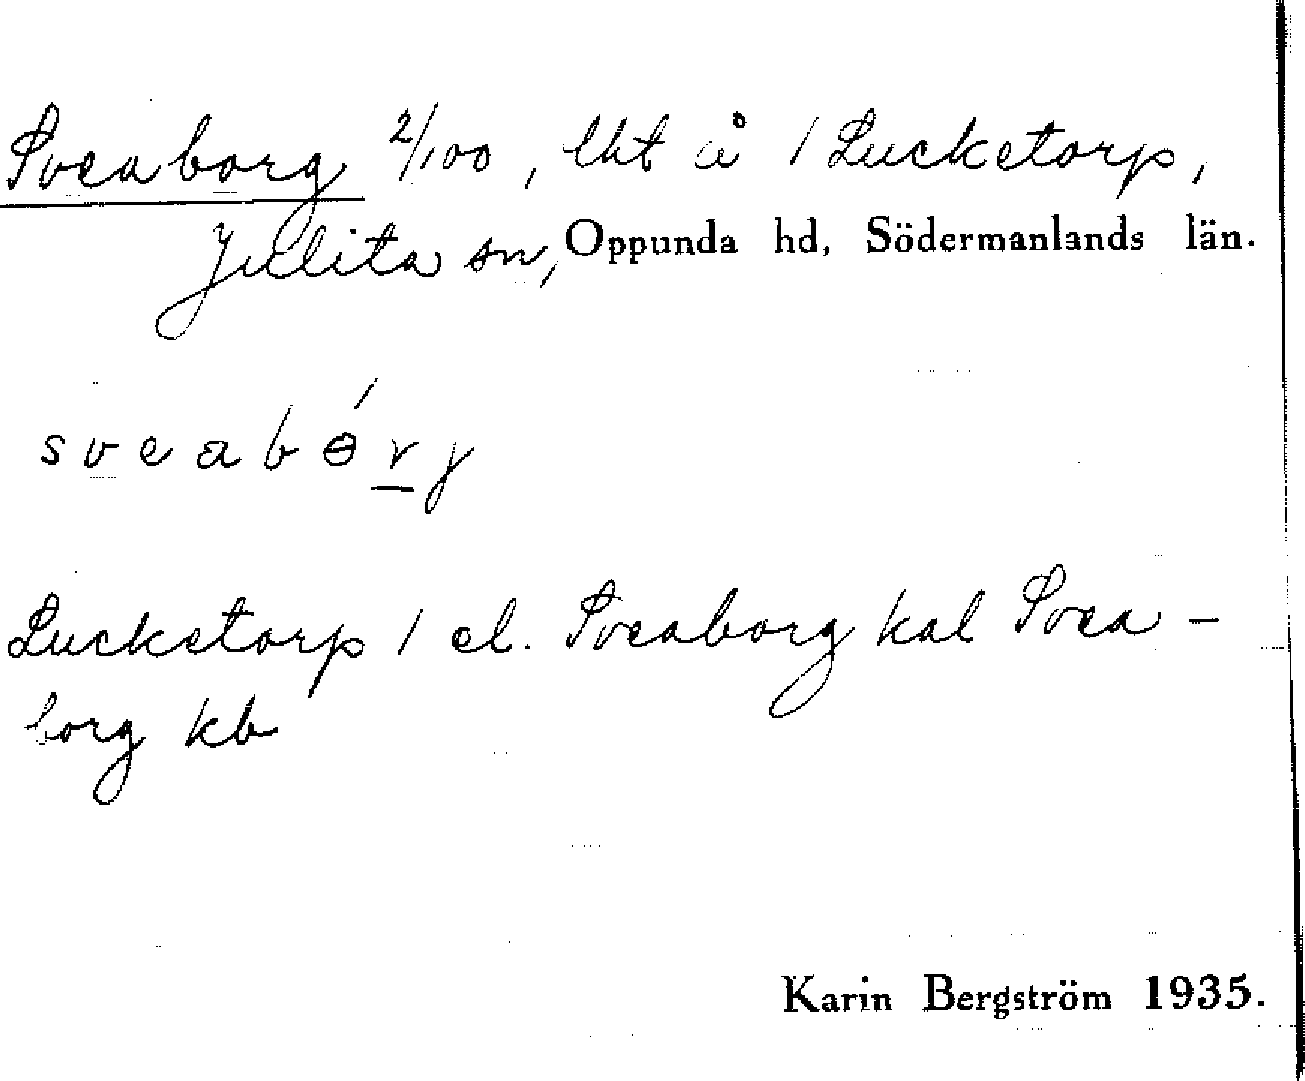 Sveaborg 2/100, lht å 1 Lucketorp,
Julita sn, Oppunda hd, Södermanlands län.
sveabɵ́rj
Lucketorp 1 el. Sveaborg kal Svea-
borg kb
Karin Bergström 1935.